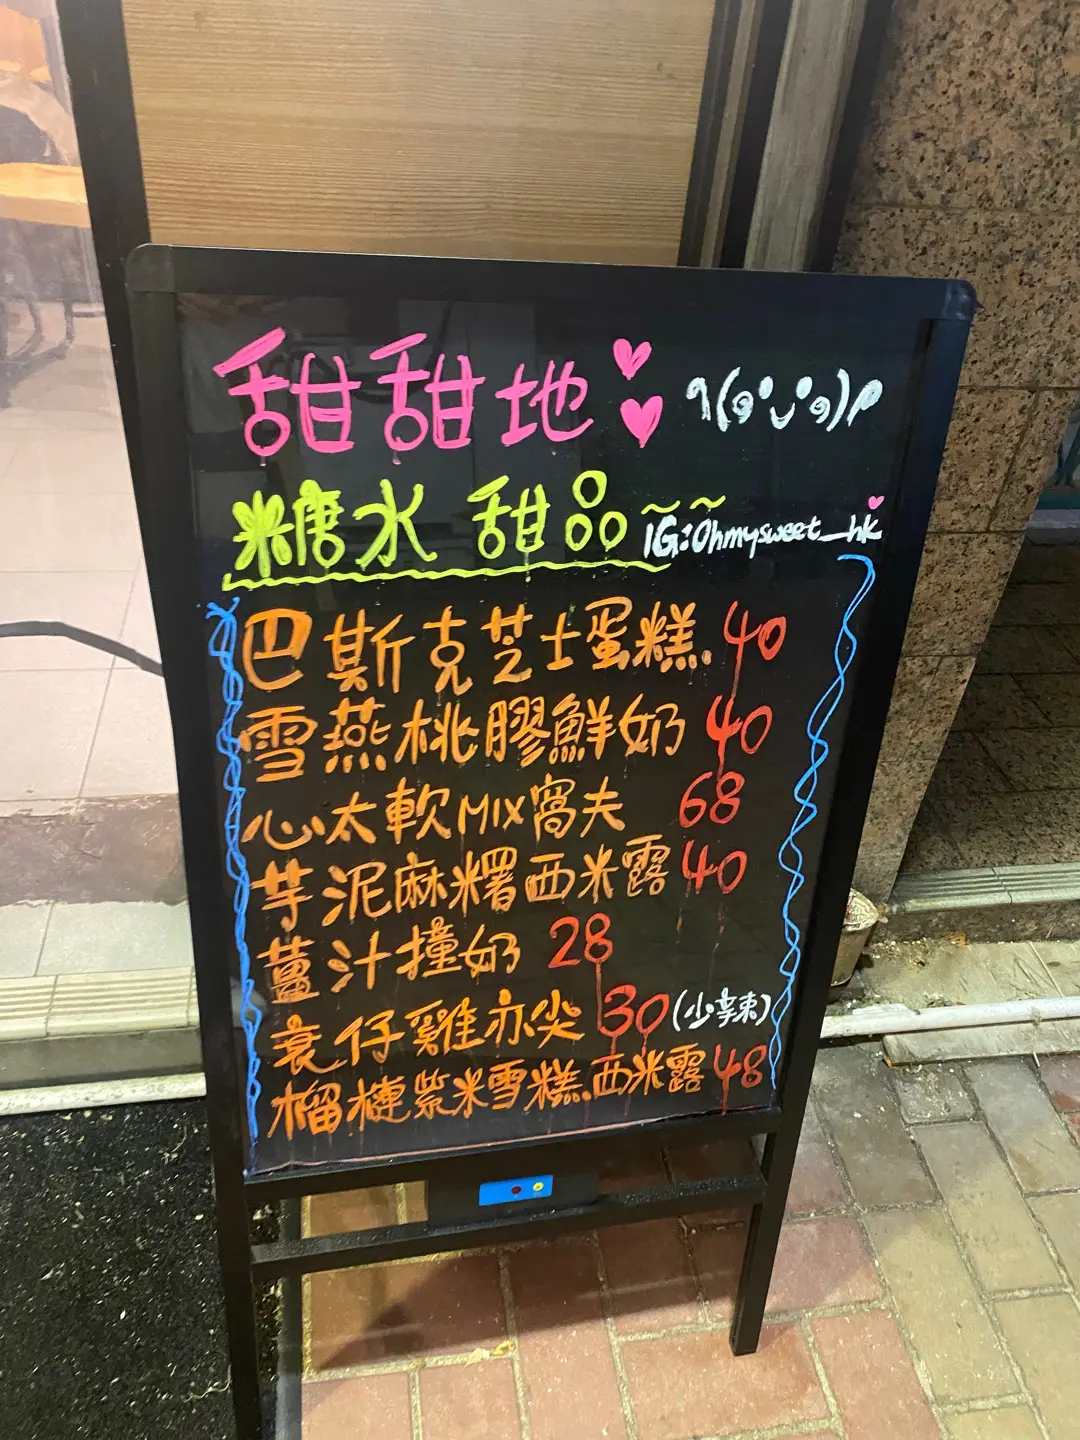 甜甜地
糖水 甜品 IG:Ohmysweet_hk
巴斯克芝士蛋糕 40
雪燕桃膠鮮奶 40
心太軟MIX窩夫 68
芋泥麻糬西米露 40
薑汁撞奶 28
衰仔雞亦尖 30 (少辣)
榴槤紫米雪糕西米露 48